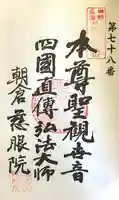 第七十八番
本尊聖観世音
四國直傳弘法大師
朝倉慈服院